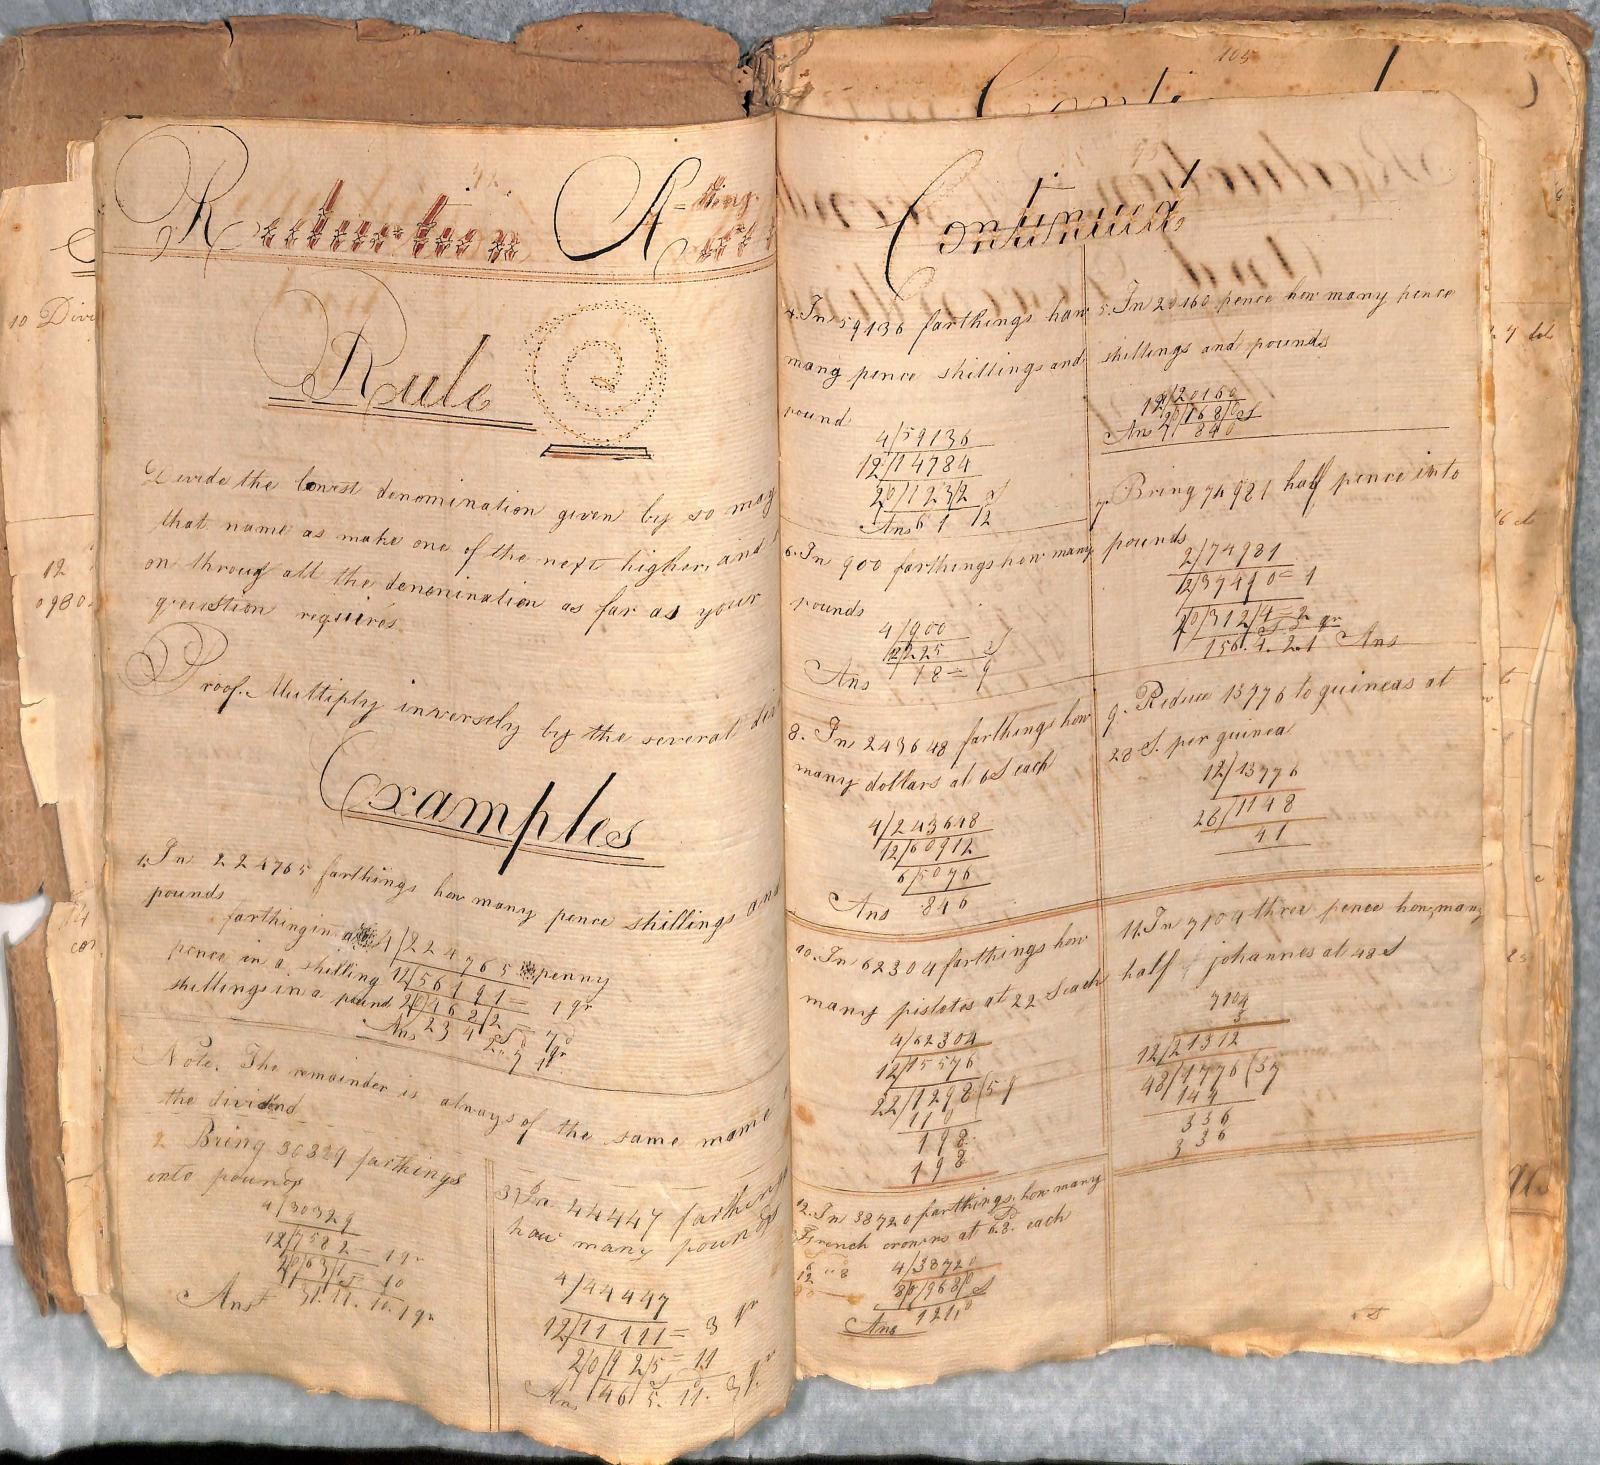 Reduction Ascending
Rule
Devide the lowest denomination given by so many
that name as make one of the next higher, and
on throug all the denomination as far as your
question requires
Proof. Multiply inversely by the several
Examples
1. In 224765 farthings how many pence shillings and
pounds
farthing in a 4/224765 penny
pence in a shilling 12/56191= 1 qr
shillings in a pound 20/4682/2= 7d
Ans 234 2 7 1
Note. The remainder is always of the same name
the dividend
2 Bring 30329 farthings
into pounds
4/30329
12/7582= 1 qr
20/63/1= 10
Ans 31. 11. 10. 1 qr
3. In 44447 farthings
how many pounds
4/44447
12/11111= 3 qr
20/92/5= 11
Ans 46 5. 11. 3 qr
Continued
4. In 59136 farthings how
many pence shillings and
pound
4/59136
12/14784
20/123/2 S
Ans 61 12
5. In 20160 pence how many pence
shillings and pounds
12/20160
20/168/0 S
Ans 84 0
6. In 900 farthings how many
pounds
4/900
12/225 S
Ans 18= 9
7. Bring 74981 half pence into
pounds
2/74981
12/37490= 1
20/312/4= 2 qr
156. 4. 2. 1 Ans
8. In 243648 farthings how
many dollars at 6 S each
4/243648
12/60912
6/5076
Ans 846
9. Reduce 13776 to guineas at
28 S. per guinea
12/13776
28/1148
41
10. In 62304 farthings how
many pistoles at 22 S each
4/62304
12/15576
22/1298(59
110
198
198
11. In 7104 three pence how many
half johannes at 48 S
7104
3
12/21312
48/1776(37
144
336
336
12. In 38720 farthings how many
French crowns at 6.8. each
6 " 8
12
80
4/38720
80/968/0
Ans 121,0
105
10 Divi
12
0980.